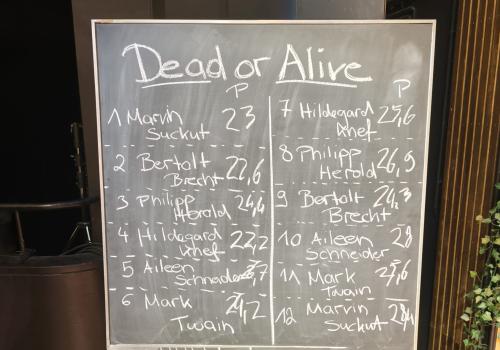 Dead or Alive
P
1 Marvin 23
Suckut
2 Bertolt 22,6
Brecht
3 Philipp
Herold 24,4
4 Hildegard 22,2
Knef
5 Aileen
Schneider
6 Mark 24,2
Twain
P
7 Hildegard 25,6
Knef
8 Philipp 26,9
Herold
9 Bertolt 24,3
Brecht
10 Aileen 28
Schneider
11 Mark 27,6
Twain
12 Marvin
Suckut